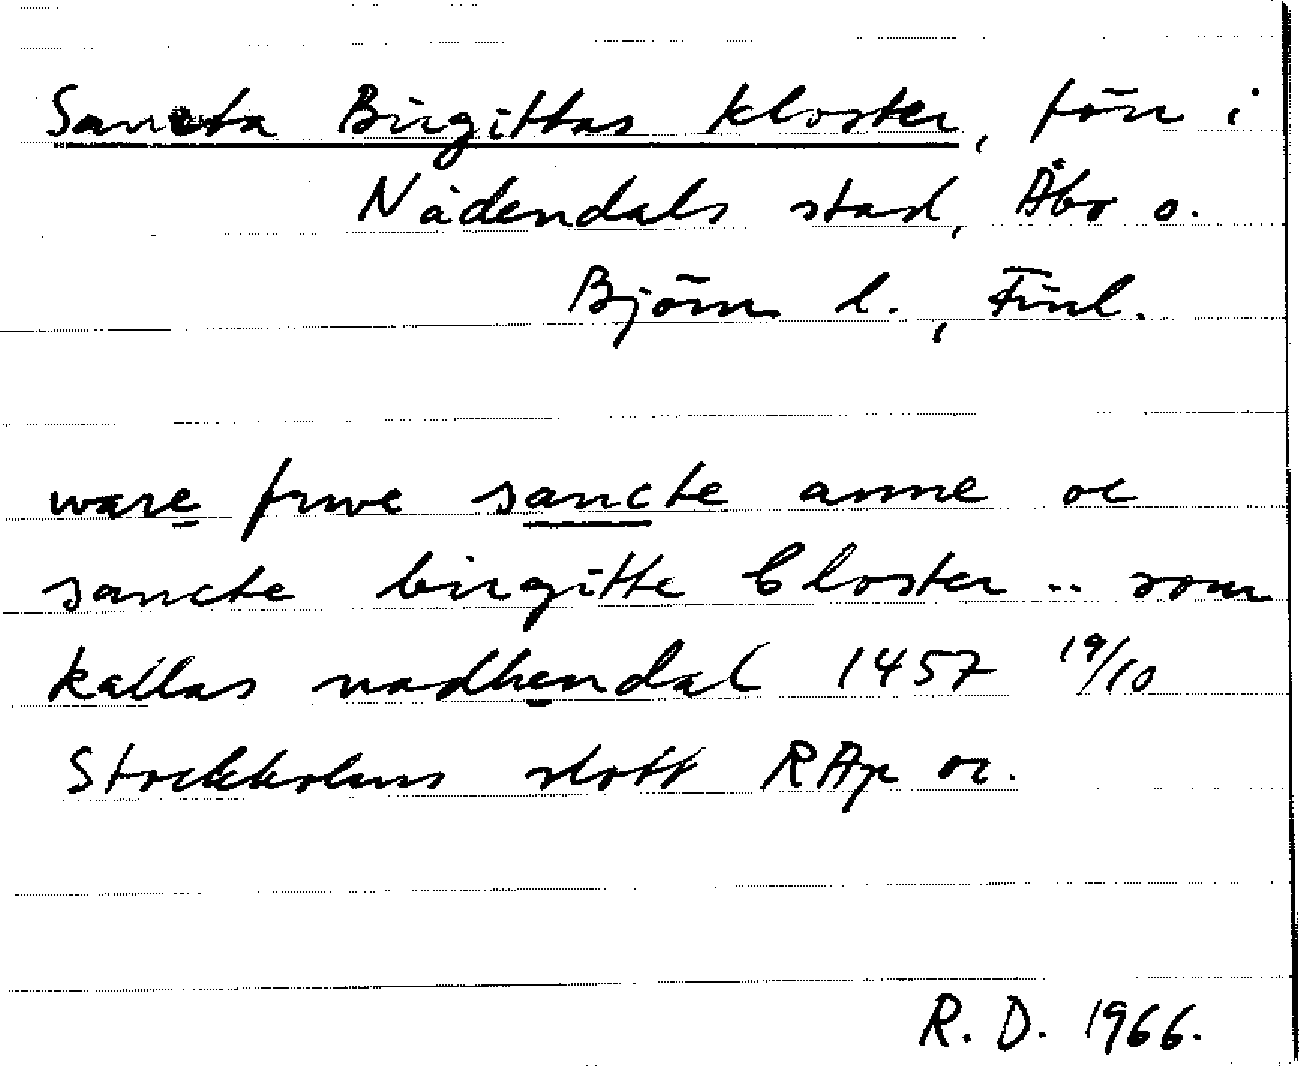 Sancta Birgittas kloster, förr i
Nådendals stad, Åbo o.
Björn. l., Finl.
ware frwe sancte anne oc
sancte birgitte Closter .. som
kallas nadhendal 1457 19/10
Stockholms slott RAp or.
R. D. 1966.